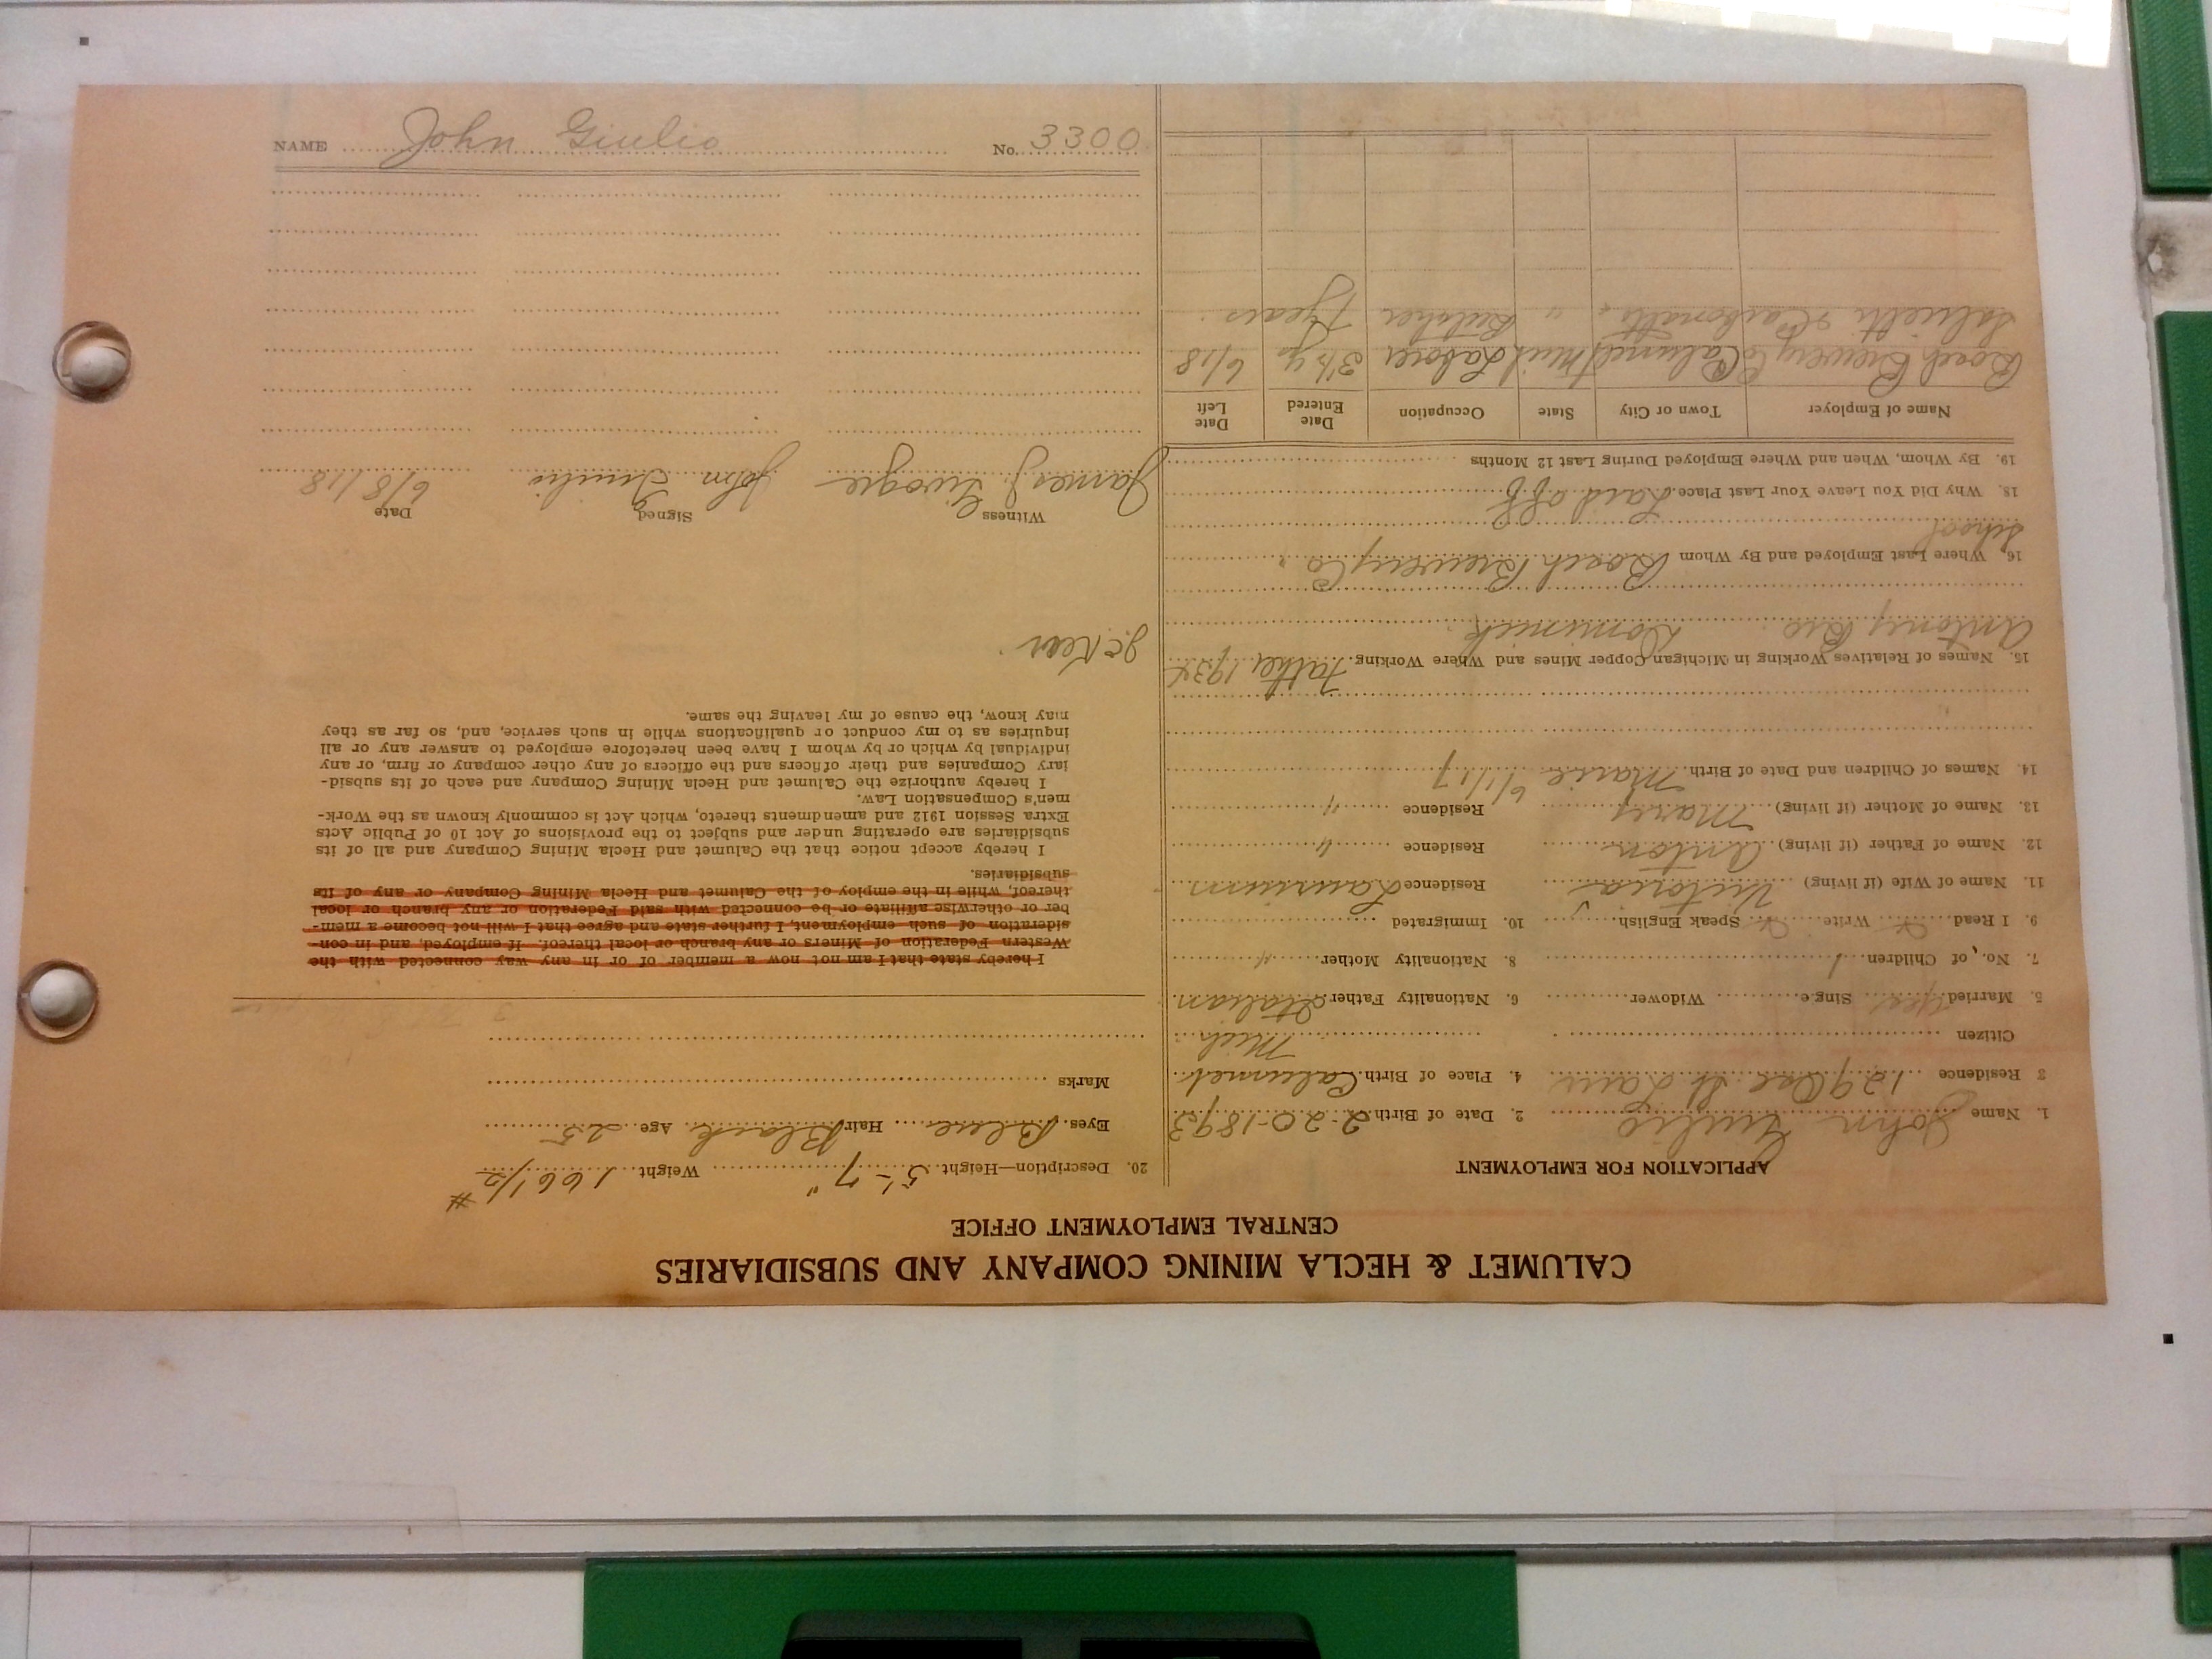 CALUMET & HECLA MINING COMPANY AND SUBSIDIARIES
CENTRAL EMPLOYMENT OFFICE
APPLICATION FOR EMPLOYMENT
1. Name John Giulio 2. Date of Birth 2-20-1893
3 Residence 129 Osc. St Laur 4. Place of Birth Calumet
Citizen Mich
5. Married yes Single Widower 6. Nationality Father Italian
7. No. of Children 1 8. Nationality Mother "
9. I Read Write Speak English 10. Immigrated
11. Name of Wife (if living) Victoria Residence Laurium
12. Name of Father (if living) Anton Residence "
13. Name of Mother (if living) Mary Residence "
14. Names of Children and Date of Birth Marie 6/1/17
15. Names of Relatives Working in Michigan Copper Mines and Where Working Father
Antony Bro. Dominick
16. Where Last Employed and By Whom Bosch Brewery Co.
School
18. Why Did You Leave Your Last Place Laid off
19. By Whom, When and Where Employed During Last 12 Months
Name of Employer Town or City State Occupation Date Entered Date Left
Bosch Brewery Co Calumet Mich Laborer 3 1/2 yr 6/18
& Carbonatti " " Butcher 7 years
20. Description—Height 5'-7" Weight 166 1/2 #
Eyes Blue Hair Black Age 25
Marks
I hereby state that I am not now a member of or in any way connected with the
Western Federation of Miners or any branch or local thereof. If employed, and in con-
sideration of such employment, I further state and agree that I will not become a mem-
ber or otherwise affiliate or be connected with said Federation or any branch or local
thereof, while in the employ of the Calumet and Hecla Mining Company or any of its
subsidiaries.
I hereby accept notice that the Calumet and Hecla Mining Company and all of its
subsidiaries are operating under and subject to the provisions of Act 10 of Public Acts
Extra Session 1912 and amendments thereto, which Act is commonly known as the Work-
men's Compensation Law.
I hereby authorize the Calumet and Hecla Mining Company and each of its subsid-
iary Companies and their officers and the officers of any other company or firm, or any
individual by which or by whom I have been heretofore employed to answer any or all
inquiries as to my conduct or qualifications while in such service, and, so far as they
may know, the cause of my leaving the same.
Witness Signed Date
James J. John Giulio 6/8/18
NAME John Giulio No. 3300